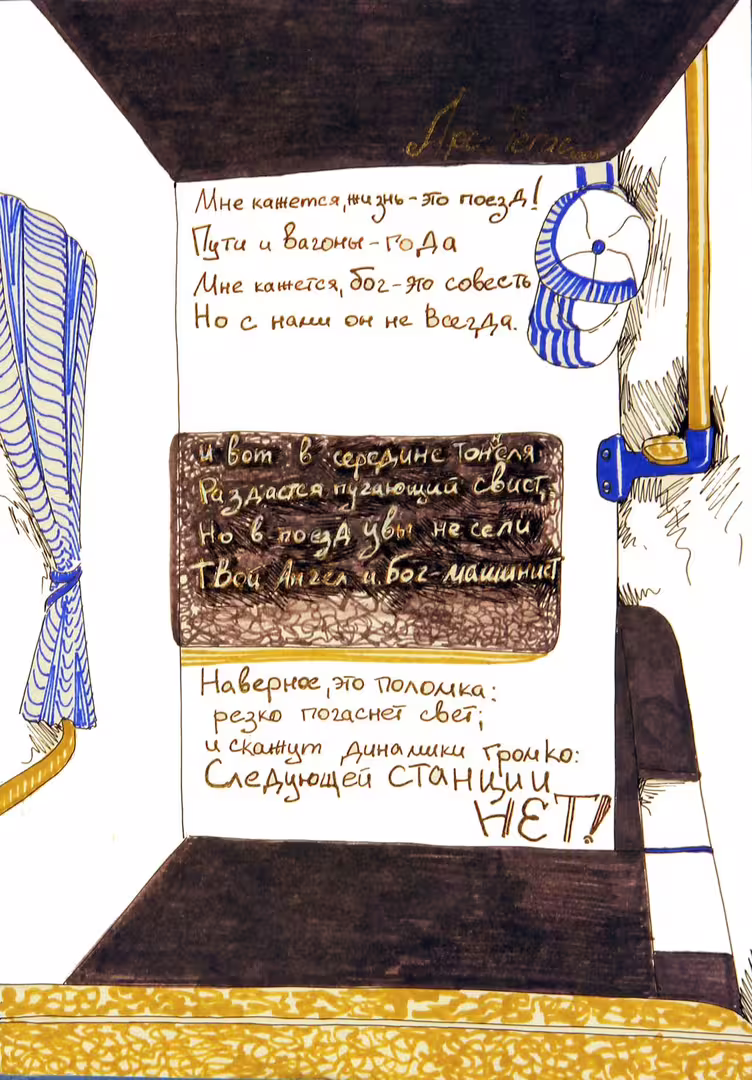 Мне кажется, жизнь - это поезд!
Пути и вагоны - года
Мне кажется, бог - это совесть
Но с нами он не всегда.
И вот в середине тоннеля
Раздастся пугающий свист,
Но в поезд увы не сели
Твой Ангел и бог-машинист
Наверное, это поломка:
резко погаснет свет;
и скажут динамики громко:
Следующей станции
НЕТ!